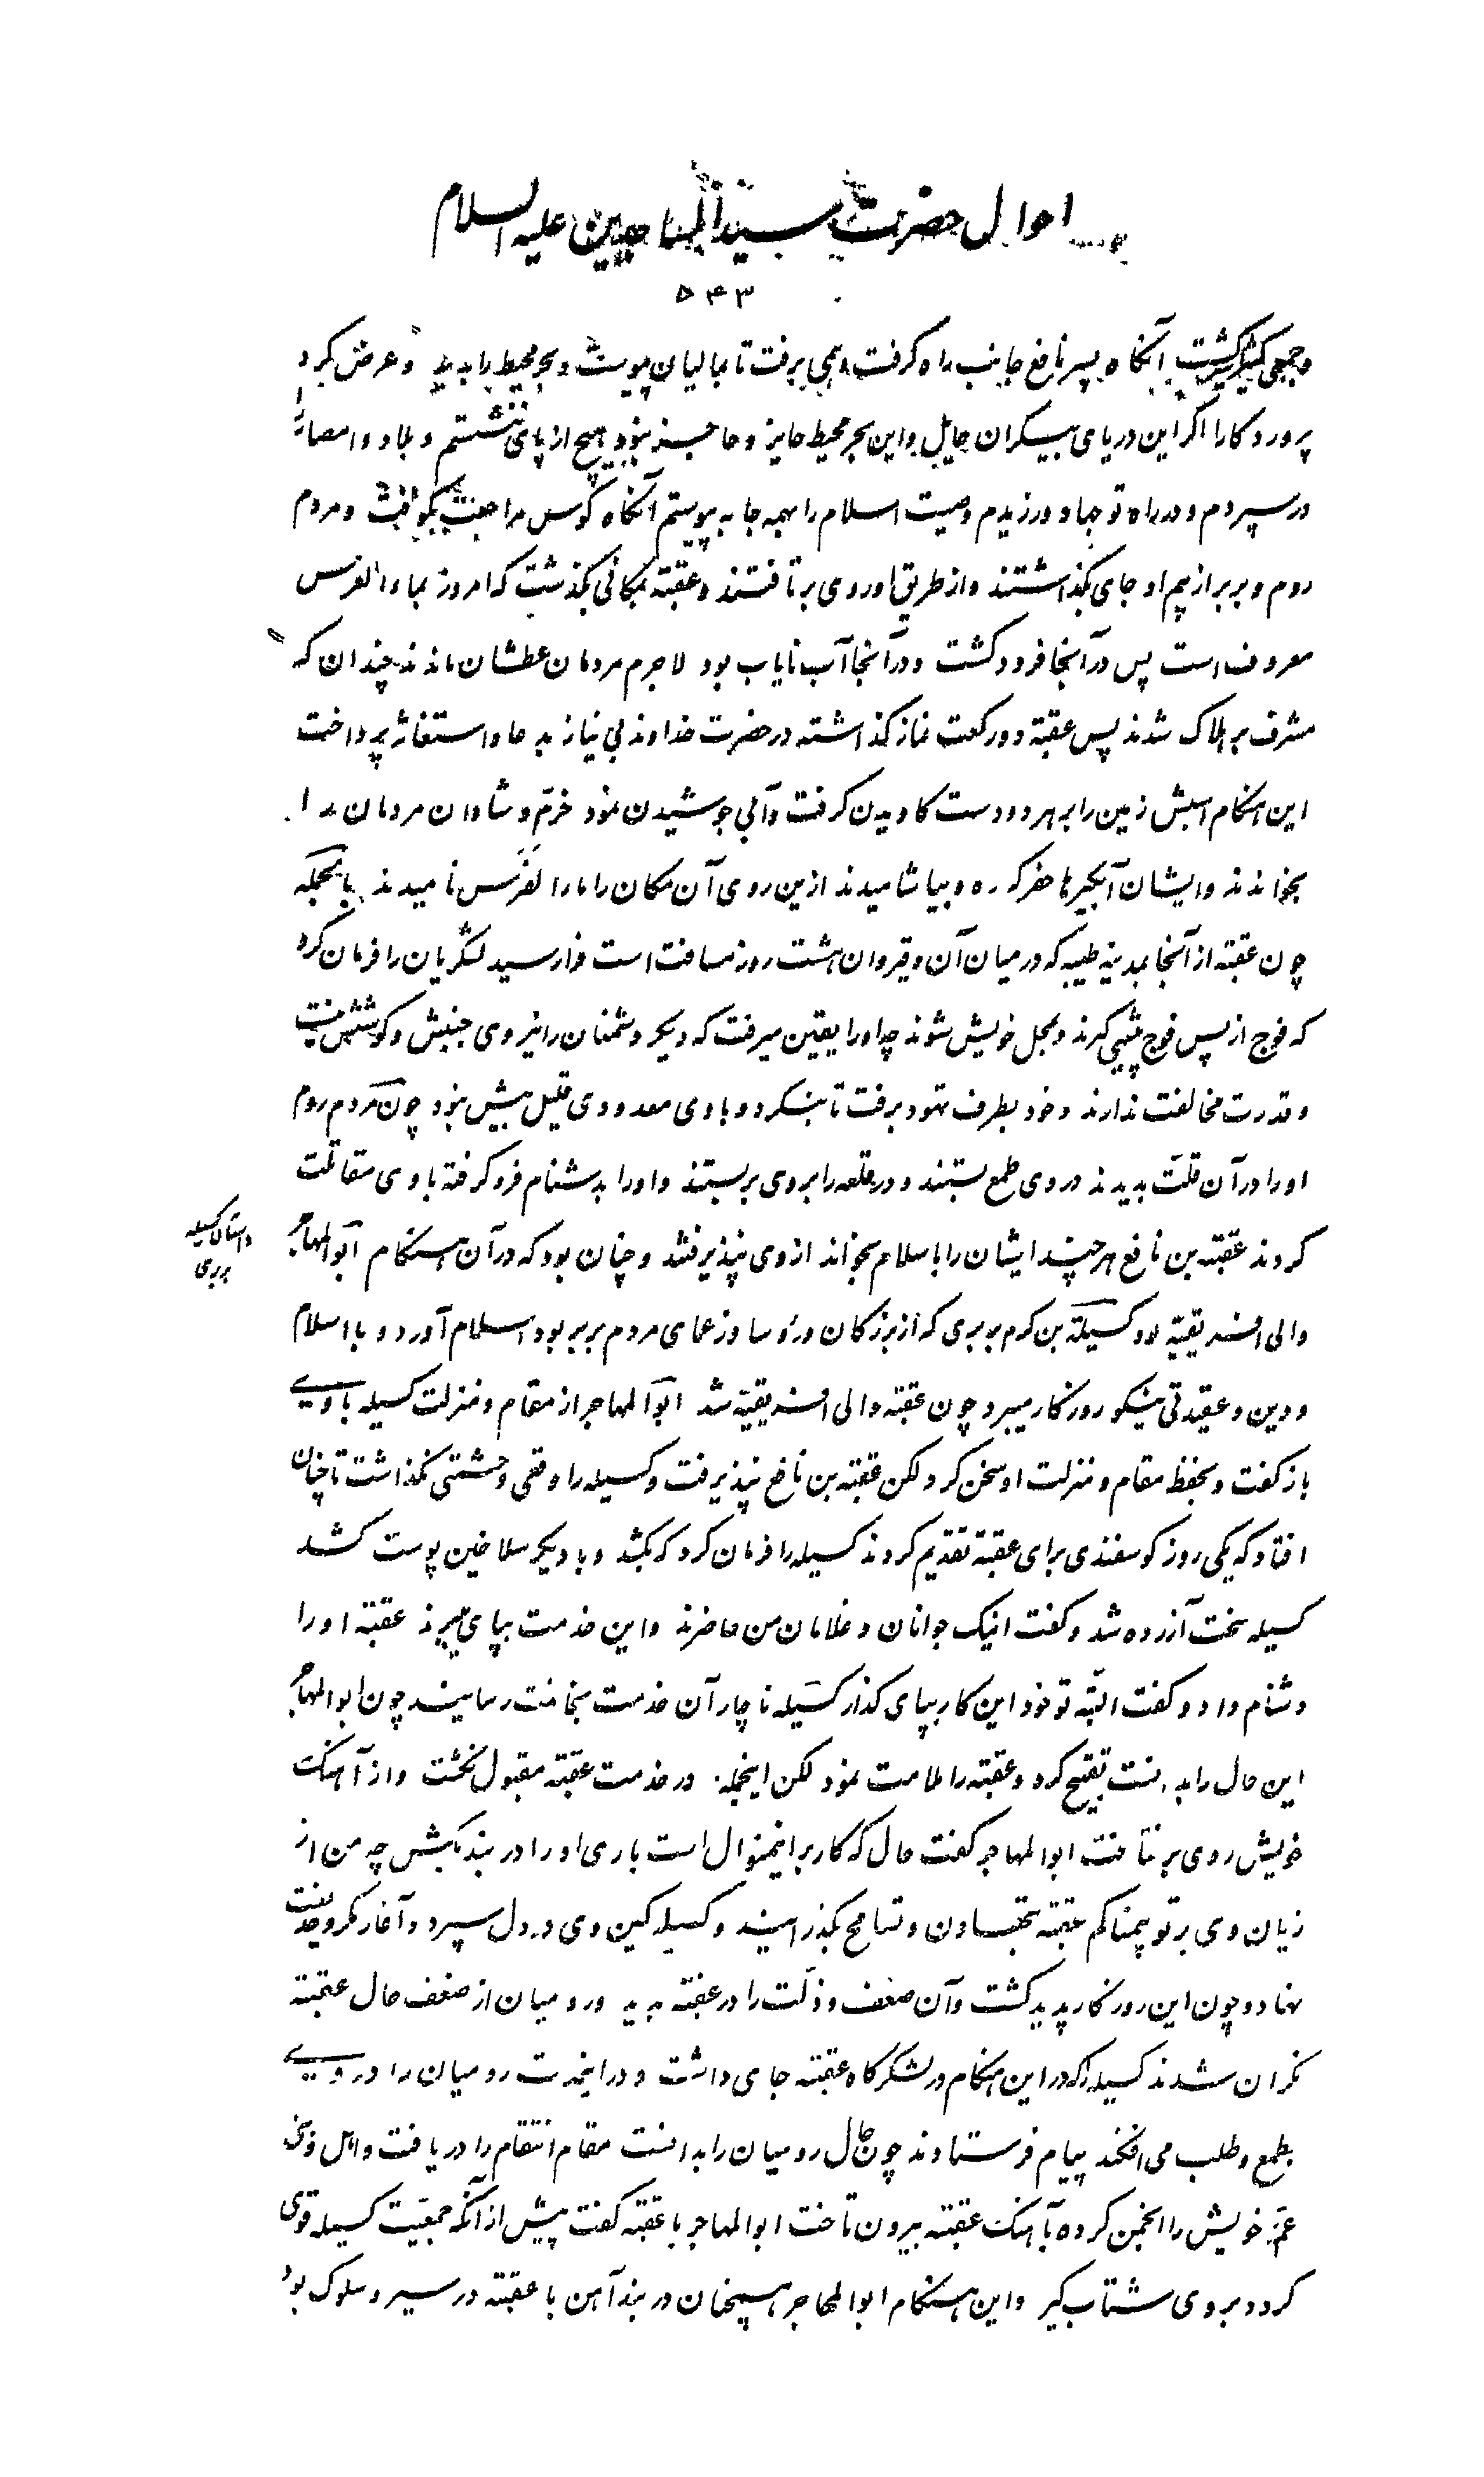 احوال حضرت سید الساجدین علیه السلام
۵۴۳
و جمعی کثیر بکشت آنگاه پسر نافع جانب راه گرفت و همی برفت تا بمالیان پیوست و بحر محیط را بدید و عرض کرد
پروردگارا اگر این دریای بیکران حایل و این بحر محیط حایز و حاجز نبودی هیچ از پای ننشستم و بلاد و امصار را
در سپردم و در راه تو جهاد ورزیدم وصیت اسلام را بهمه جا به پیوستم آنگاه کوس مراجعت بکوفت و مردم
روم و بربر از بیم او جای بگذاشتند و از طریق او روی برتافتند و عقبة بمکانی بگذشت که امروز بماء الفرس
معروف است پس در آنجا فرود گشت و در آنجا آب نایاب بود لاجرم مردمان عطشان ماندند چندان که
مشرف بر هلاک شدند پس عقبة دو رکعت نماز گذاشته در حضرت خداوند بی نیاز بدعا و استغاثه پرداخت
این هنگام اسبش زمین را بهر دو دست کاویدن گرفت و آبی جوشیدن نمود خرّم و شادان مردمان را
بخواندند و ایشان آبگیرها حفر کرده و بیاشامیدند ازین روی آن مکان را ماء الفَرَس نامیدند بالجمله
چون عقبة از آنجا بمدینه طیبه که در میان آن و قیروان هشت روزه مسافت است فرا رسید لشگریان را فرمان کرد
که فوج از پس فوج پیشی گیرند و بمحل خویش شوند چه او را یقین میرفت که دیگر دشمنان را نیروی جنبش و کوشش نیست
و قدرت مخالفت ندارند و خود بطرف تهود برفت تا بنگرد و با وی معدودی قلیل بیش نبود چون مردم روم
او را در آن قلّت بدیدند در وی طمع بستند و در قلعه را بروی بربستند و او را بدشنام فرو گرفته با وی مقاتلت
کردند عقبة بن نافع هر چند ایشان را باسلام بخواند از وی نپذیرفتند و چنان بود که در آن هنگام ابوالمهاجر
داستان کسیله
بربری
والی افریقیّه بود کسیلة بن کرم بربری که از بزرگان و رؤسا و زعمای مردم بربر بود اسلام آورد و با اسلام
و دین و عقیدتی نیکو روزگار میبرد چون عقبة والی افریقیّه شد ابوالمهاجر از مقام و منزلت کسیله با وی
باز گفت و بحفظ مقام و منزلت او سخن کرد لکن عقبة بن نافع نپذیرفت و کسیله را وقعی و حشمتی نگذاشت تا چنان
افتاد که یکی روز گوسفندی برای عقبة تقدیم کردند کسیله را فرمان کرد که بکشد و با دیگر سلاخین پوست کشد
کسیله سخت آزرده شد و گفت اینک جوانان و غلامان من حاضرند و این خدمت بپای میبرند عقبة او را
دشنام داد و گفت البتّه تو خود این کار بپای گذار کسیله ناچار آن خدمت بخاتمت رسانید چون ابوالمهاجر
این حال را بدانست تقبیح کرد و عقبة را ملامت نمود لکن اینجمله در خدمت عقبة مقبول نگشت و از آهنگ
خویش روی برنتافت ابوالمهاجر گفت حال که کار بر اینمنوال است باری او را در بند بکش چه من از
زیان وی بر تو بیمناکم عقبة بتهاون و تسامح بگذرانید و کسیله کین وی در دل سپرد و آغاز مکر و خدیعت
نهاد و چون این روزگار پدید گشت و آن ضعف و ذلّت را در عقبة بدید و رومیان از ضعف حال عقبة
نگران شدند کسیله را که در این هنگام در لشگرگاه عقبة جای داشت و در اینمدت رومیان را در وی
بطمع و طلب می افکند پیام فرستادند چون حال رومیان را بدانست مقام انتقام را دریافت و اهل و بنی
عمّ خویش را انجمن کرده بآهنگ عقبة بیرون تاخت ابوالمهاجر با عقبة گفت پیش از آنکه جمعیّت کسیله قوی
گردد بروی شتاب گیر و این هنگام ابوالمهاجر همچنان در بند آهن با عقبة در سیر و سلوک بود